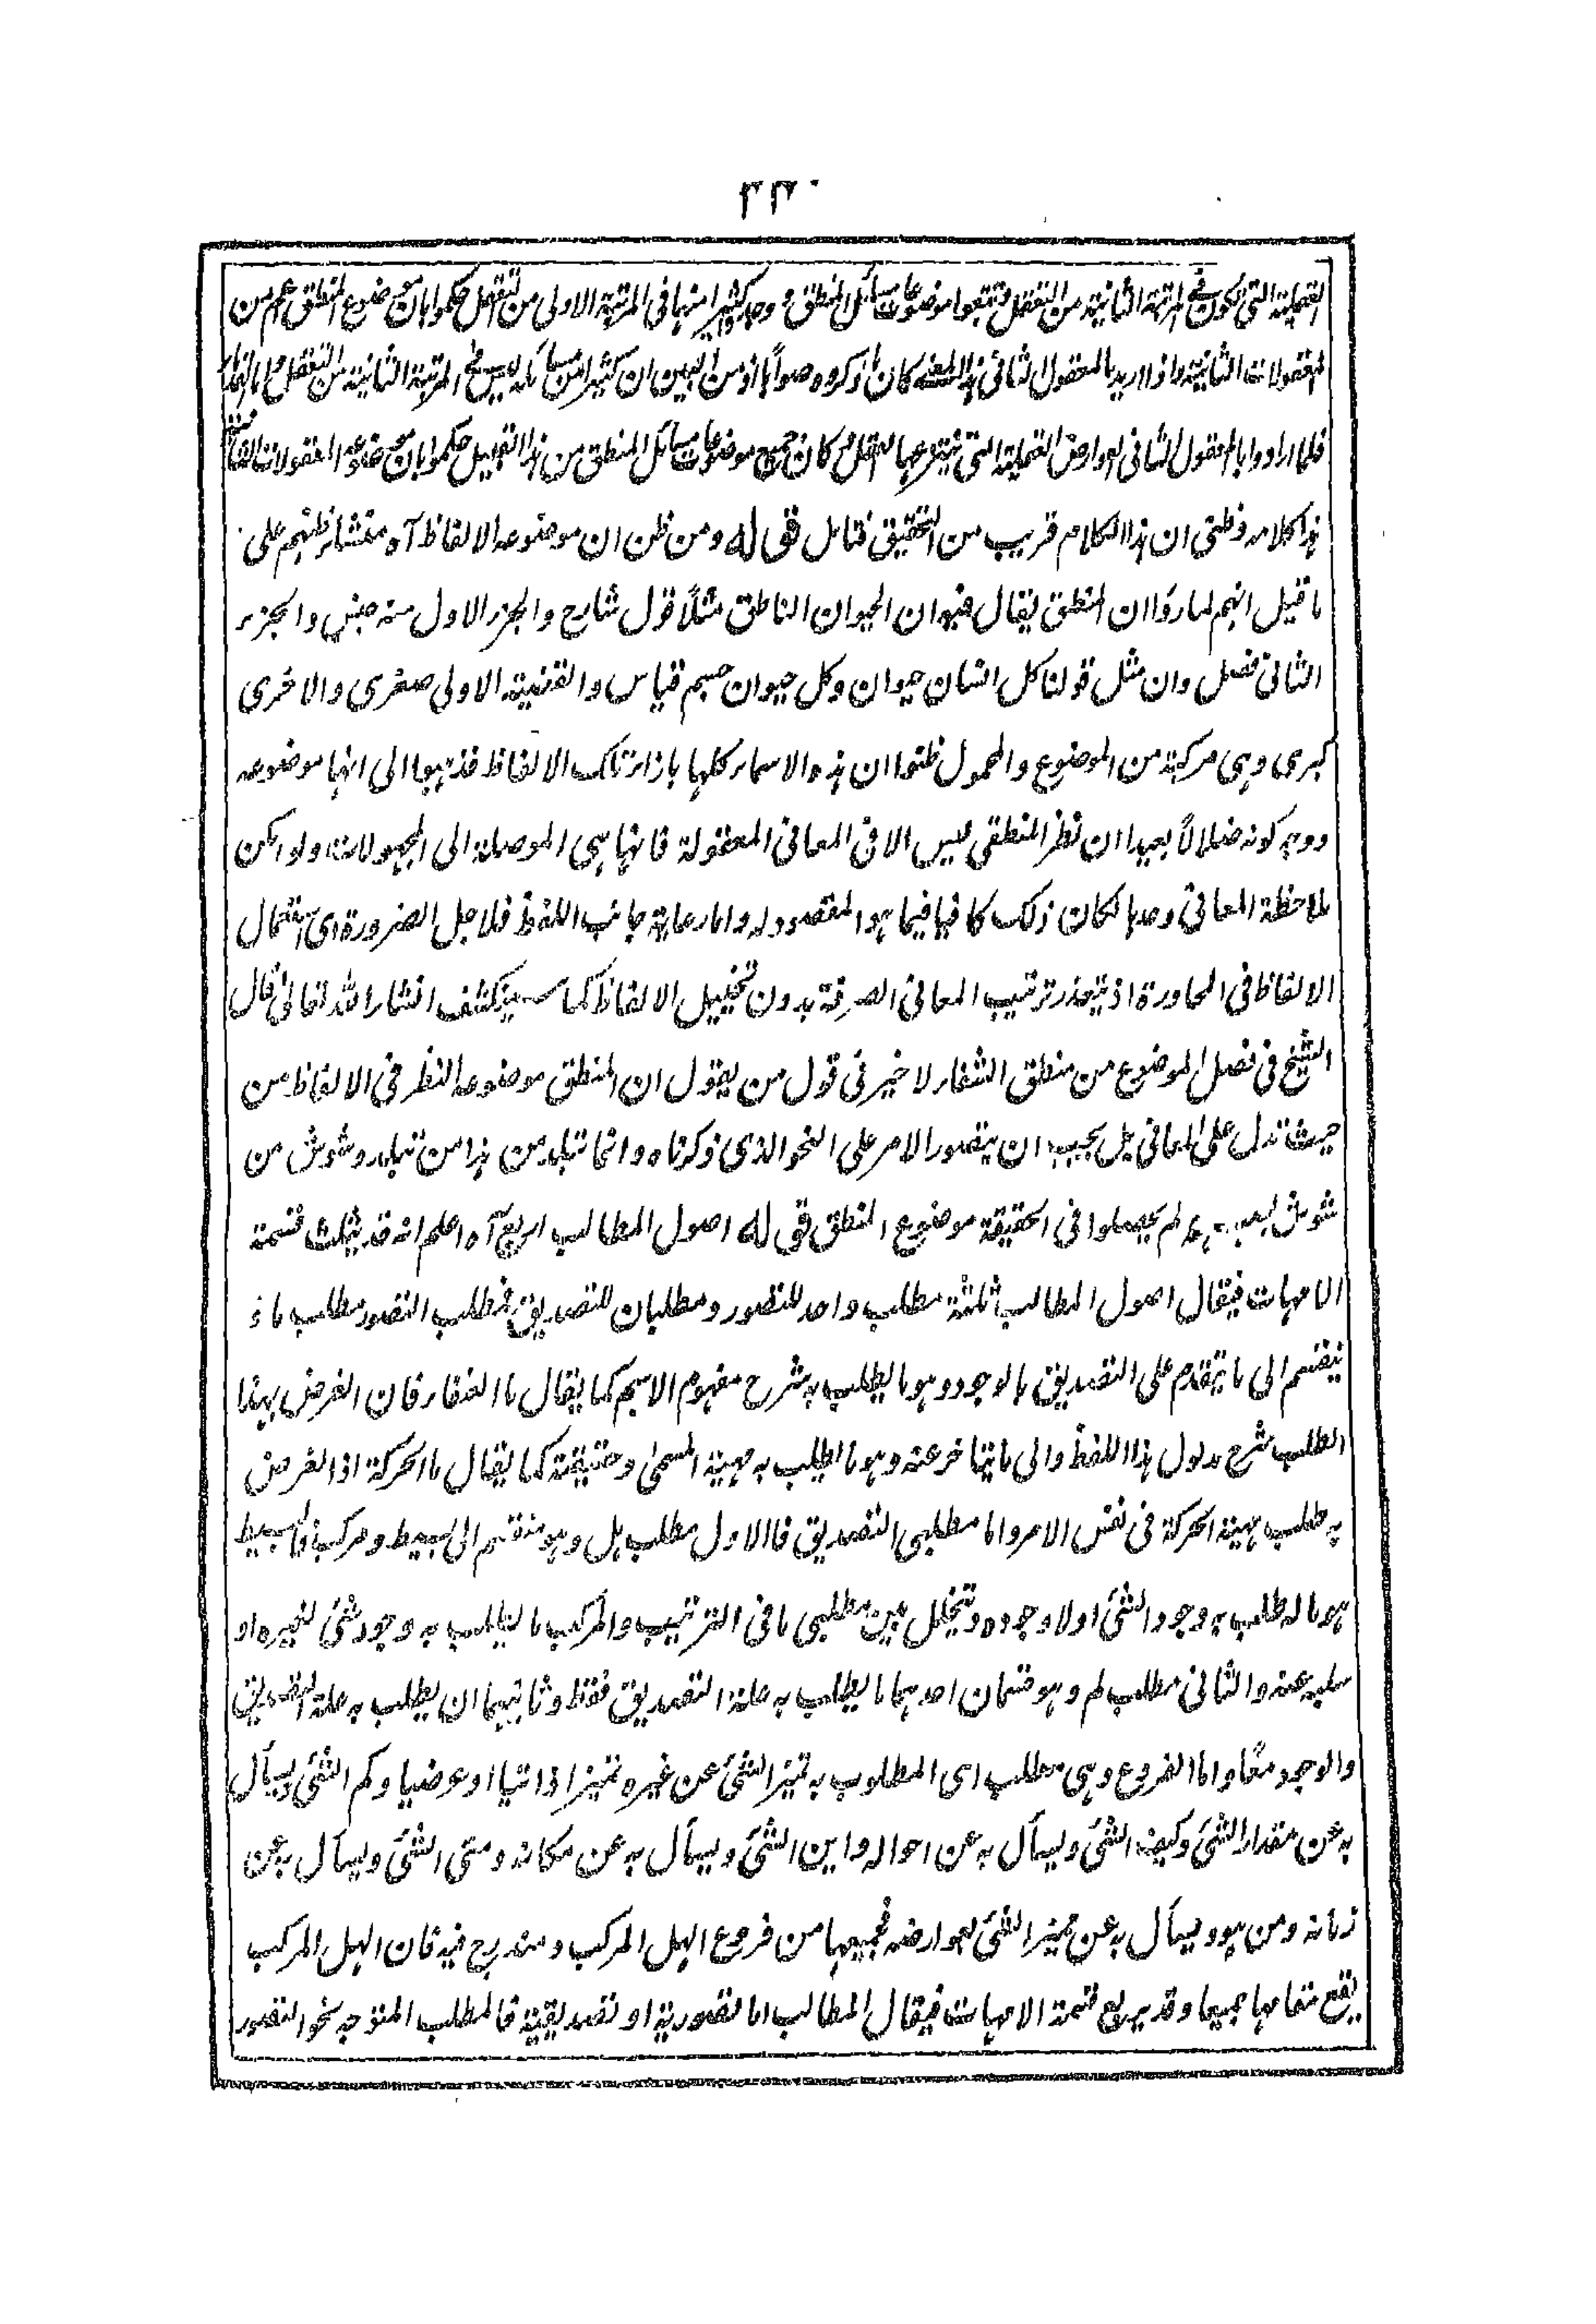 ٢٣٠
العقلية التى تكون فى المرتبة الثانية من التعقل وتتبعوا موضوعات مسائل المنطق ووجدوا كثيرا منها فى المرتبة الاولى من التعقل حكموا بان موضوع المنطق اعم من
المعقولات الثانية واذا اريد بالمعقول الثانى هذا المعنى كان ما ذكروه صوابا اذ من البين ان كثيرا من مسائله ليس فى المرتبة الثانية من التعقل واما القدماء
فلما ارادوا بالمعقول الثانى العوارض العقلية التى ينتزعها العقل وكان جميع موضوعات مسائل المنطق من هذا القبيل حكموا بان موضوعه المعقولات الثانية
هذا كلامه وظنى ان هذا الكلام قريب من التحقيق فتامل قوله ومن ظن ان موضوعه الالفاظ آه منشأ ظنهم على
ما قيل انهم لما رأوا ان المنطق يقال فيه ان الحيوان الناطق مثلاً قول شارح والجزء الاول منه جنس والجزء
الثانى فصل وان مثل قولنا كل انسان حيوان وكل حيوان جسم قياس والقضية الاولى صغرى والاخرى
كبرى وهى مركبة من الموضوع والمحمول ظنوا ان هذه الاسماء كلها بازاء تلك الالفاظ فذهبوا الى انها موضوعه
ووجه كونه ضلالاً بعيدا ان نظر المنطقى ليس الا فى المعانى المعقولة فانها هى الموصلة الى المجهولات ولو امكن
ملاحظة المعانى وحدها لكان ذلك كافيا فيما هو المقصود له واما رعاية جانب اللفظ فلاجل الضرورة اى استعمال
الالفاظ فى المحاورة اذ يتعذر ترتيب المعانى الصرفة بدون تخييل الالفاظ كما سينكشف انشاء الله تعالى قال
الشيخ فى فصل الموضوع من منطق الشفاء لا خير فى قول من يقول ان المنطق موضوعه النظر فى الالفاظ من
حيث تدل على المعانى بل يجب ان يتصور الامر على النحو الذى ذكرناه وانما تبلد من هذا من تبلد وشوش من
شوش لم يحصلوا فى الحقيقة موضوع المنطق قوله اصول المطالب اربع آه اعلم انه قد يثلث قسمة
الامهات فيقال اصول المطالب ثلثة مطلب واحد للتصور ومطلبان للتصديق فمطلب التصور مطلب ما و
ينقسم الى ما يتقدم على التصديق بالوجود وهو ما يطلب به شرح مفهوم الاسم كما يقال ما العنقاء فان الغرض بهذا
الطلب شرح مدلول هذا اللفظ والى ما يتاخر عنه وهو ما يطلب به مهية المسمى وحقيقته كما يقال ما الحركة اذ الغرض
به طلب مهية الحركة فى نفس الامر واما مطلبى التصديق فالاول مطلب هل وهو منقسم الى بسيط ومركب فالبسيط
هو ما يطلب به وجود الشئ او لا وجوده ويتخلل بين مطلبى ما فى الترتيب والمركب ما يطلب به وجود شئ لغيره او
سلبه عنه والثانى مطلب لم وهو قسمان احدهما ما يطلب به علة التصديق فقط وثانيهما ان يطلب به علة التصديق
والوجود معًا واما الفروع وهى مطلب اى المطلوب به تميز الشئ عن غيره تميزا ذاتيا او عرضيا وكم الشئ ويسأل
به عن مقدار الشئ وكيف الشئ ويسأل به عن احواله واين الشئ ويسأل به عن مكانه ومتى الشئ ويسأل به عن
زمانه ومن هو ويسأل به عن مميز الشئ بعوارضه فجميعها من فروع الهل المركب ومندرج فيه فان الهل المركب
يقع مقامها جميعا وقد يربع قسمة الامهات فيقال المطالب اما تصورية او تصديقية فالمطلب المتوجه نحو التصور